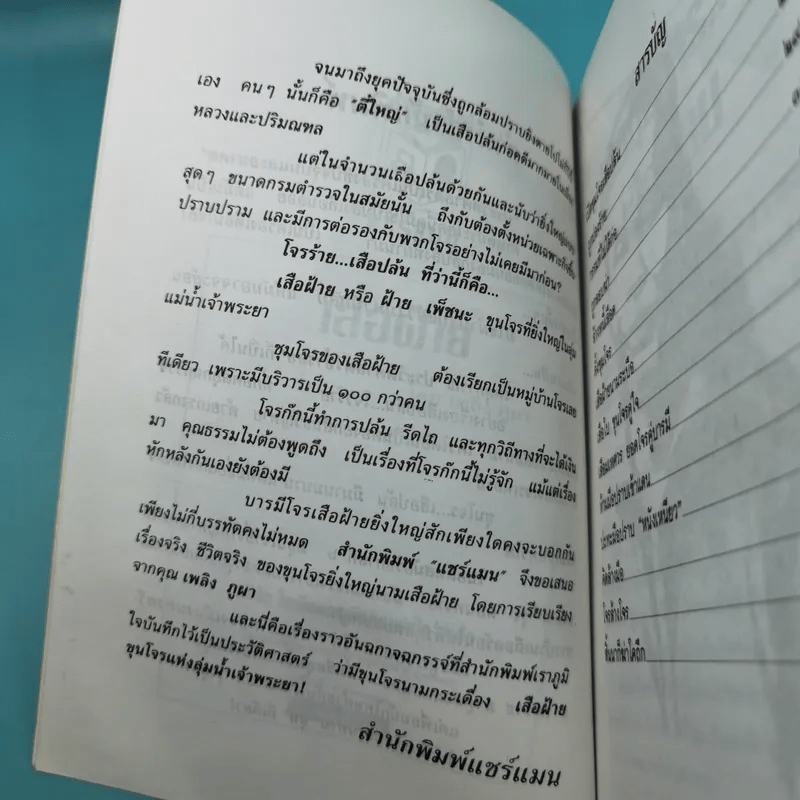 จนมาถึงยุคปัจจุบันซึ่งถูกล้อมปราบยิงตายไป
เอง คนๆ นั้นก็คือ "ตี๋ใหญ่" เป็นเสือปล้นก่อคดีมากมาย
หลวงและปริมณฑล
แต่ในจำนวนเสือปล้นด้วยกันและนับว่ายิ่งใหญ่
สุดๆ ขนาดกรมตำรวจในสมัยนั้น ถึงกับต้องตั้งหน่วยเฉพาะกิจขึ้น
ปราบปราม และมีการต่อรองกับพวกโจรอย่างไม่เคยมีมาก่อน?
โจรร้าย...เสือปล้น ที่ว่านี้ก็คือ...
เสือฝ้าย หรือ ฝ้าย เพ็ชนะ ขุนโจรที่ยิ่งใหญ่ในลุ่ม
แม่น้ำเจ้าพระยา
ชุมโจรของเสือฝ้าย ต้องเรียกเป็นหมู่บ้านโจรเลย
ทีเดียว เพราะมีบริวารเป็น ๑๐๐ กว่าคน
โจรก๊กนี้ทำการปล้น รีดไถ และทุกวิถีทางที่จะได้เงิน
มา คุณธรรมไม่ต้องพูดถึง เป็นเรื่องที่โจรก๊กนี้ไม่รู้จัก แม้แต่เรื่อง
หักหลังกันเองยังต้องมี
บารมีโจรเสือฝ้ายยิ่งใหญ่สักเพียงใดคงจะบอกกัน
เพียงไม่กี่บรรทัดคงไม่หมด สำนักพิมพ์ "แชร์แมน" จึงขอเสนอ
เรื่องจริง ชีวิตจริง ของขุนโจรยิ่งใหญ่นามเสือฝ้าย โดยการเรียบเรียง
จากคุณ เพลิง ภูผา
และนี่คือเรื่องราวอันฉกาจฉกรรจ์ที่สำนักพิมพ์เราภูมิ
ใจบันทึกไว้เป็นประวัติศาสตร์ ว่ามีขุนโจรนามกระเดื่อง เสือฝ้าย
ขุนโจรแห่งลุ่มน้ำเจ้าพระยา!
สำนักพิมพ์แชร์แมน
สารบัญ
เสือใบ ขุนโจรคู่ใจ
เสือมเหศวร ยอดโจรคู่บารมี
ปะทะมือปราบ "หนังเหนียว"
โจรล้างโจร